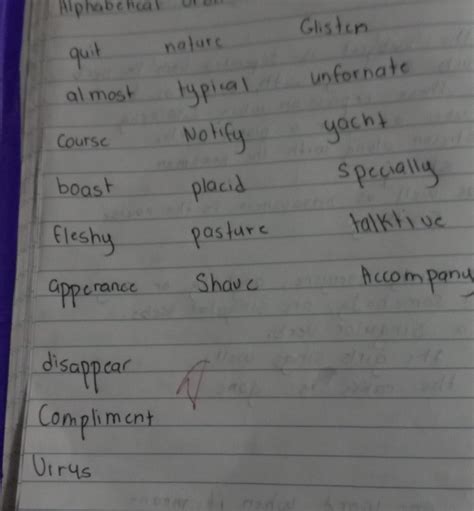 Alphabetical
quit nature Glisten
almost typical unfornate
Course Notify yacht
boast placid Specially
fleshy pasture talktive
apperance Shave Accompany
disappear
Compliment
Virus